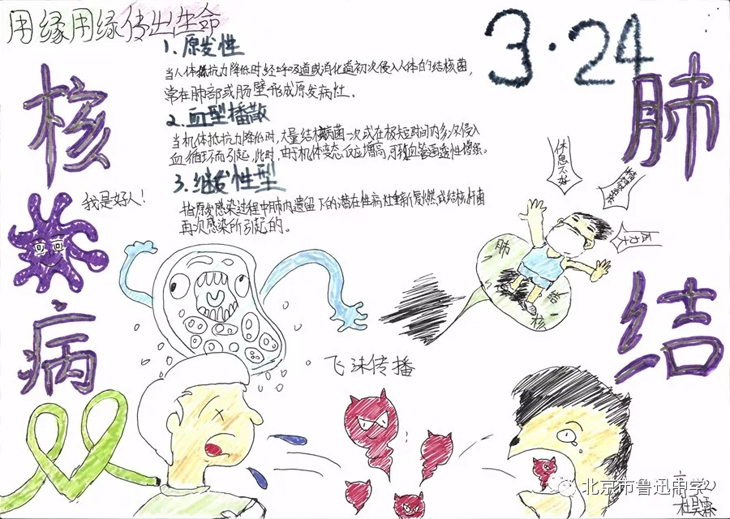 用缘用绿传出生命
3·24
肺结核病
1.原发性
当人体抵抗力降低时,经呼吸道或消化道初次侵入人体的结核菌,
常在肺部或肠壁形成原发病灶。
2.血型播散
当机体抵抗力降低时,大量结核病菌一次或在极短时间内多次侵入
血循环而引起,此时,由于机体变态反应增高,可致血管通透性增强。
3.继发性型
指原发感染过程中肺内遗留下的潜在性病灶重新复燃或结核杆菌
再次感染所引起的。
我是好人!
休息不好
压力大
肺
结
核
飞沫传播
北京市鲁迅中学